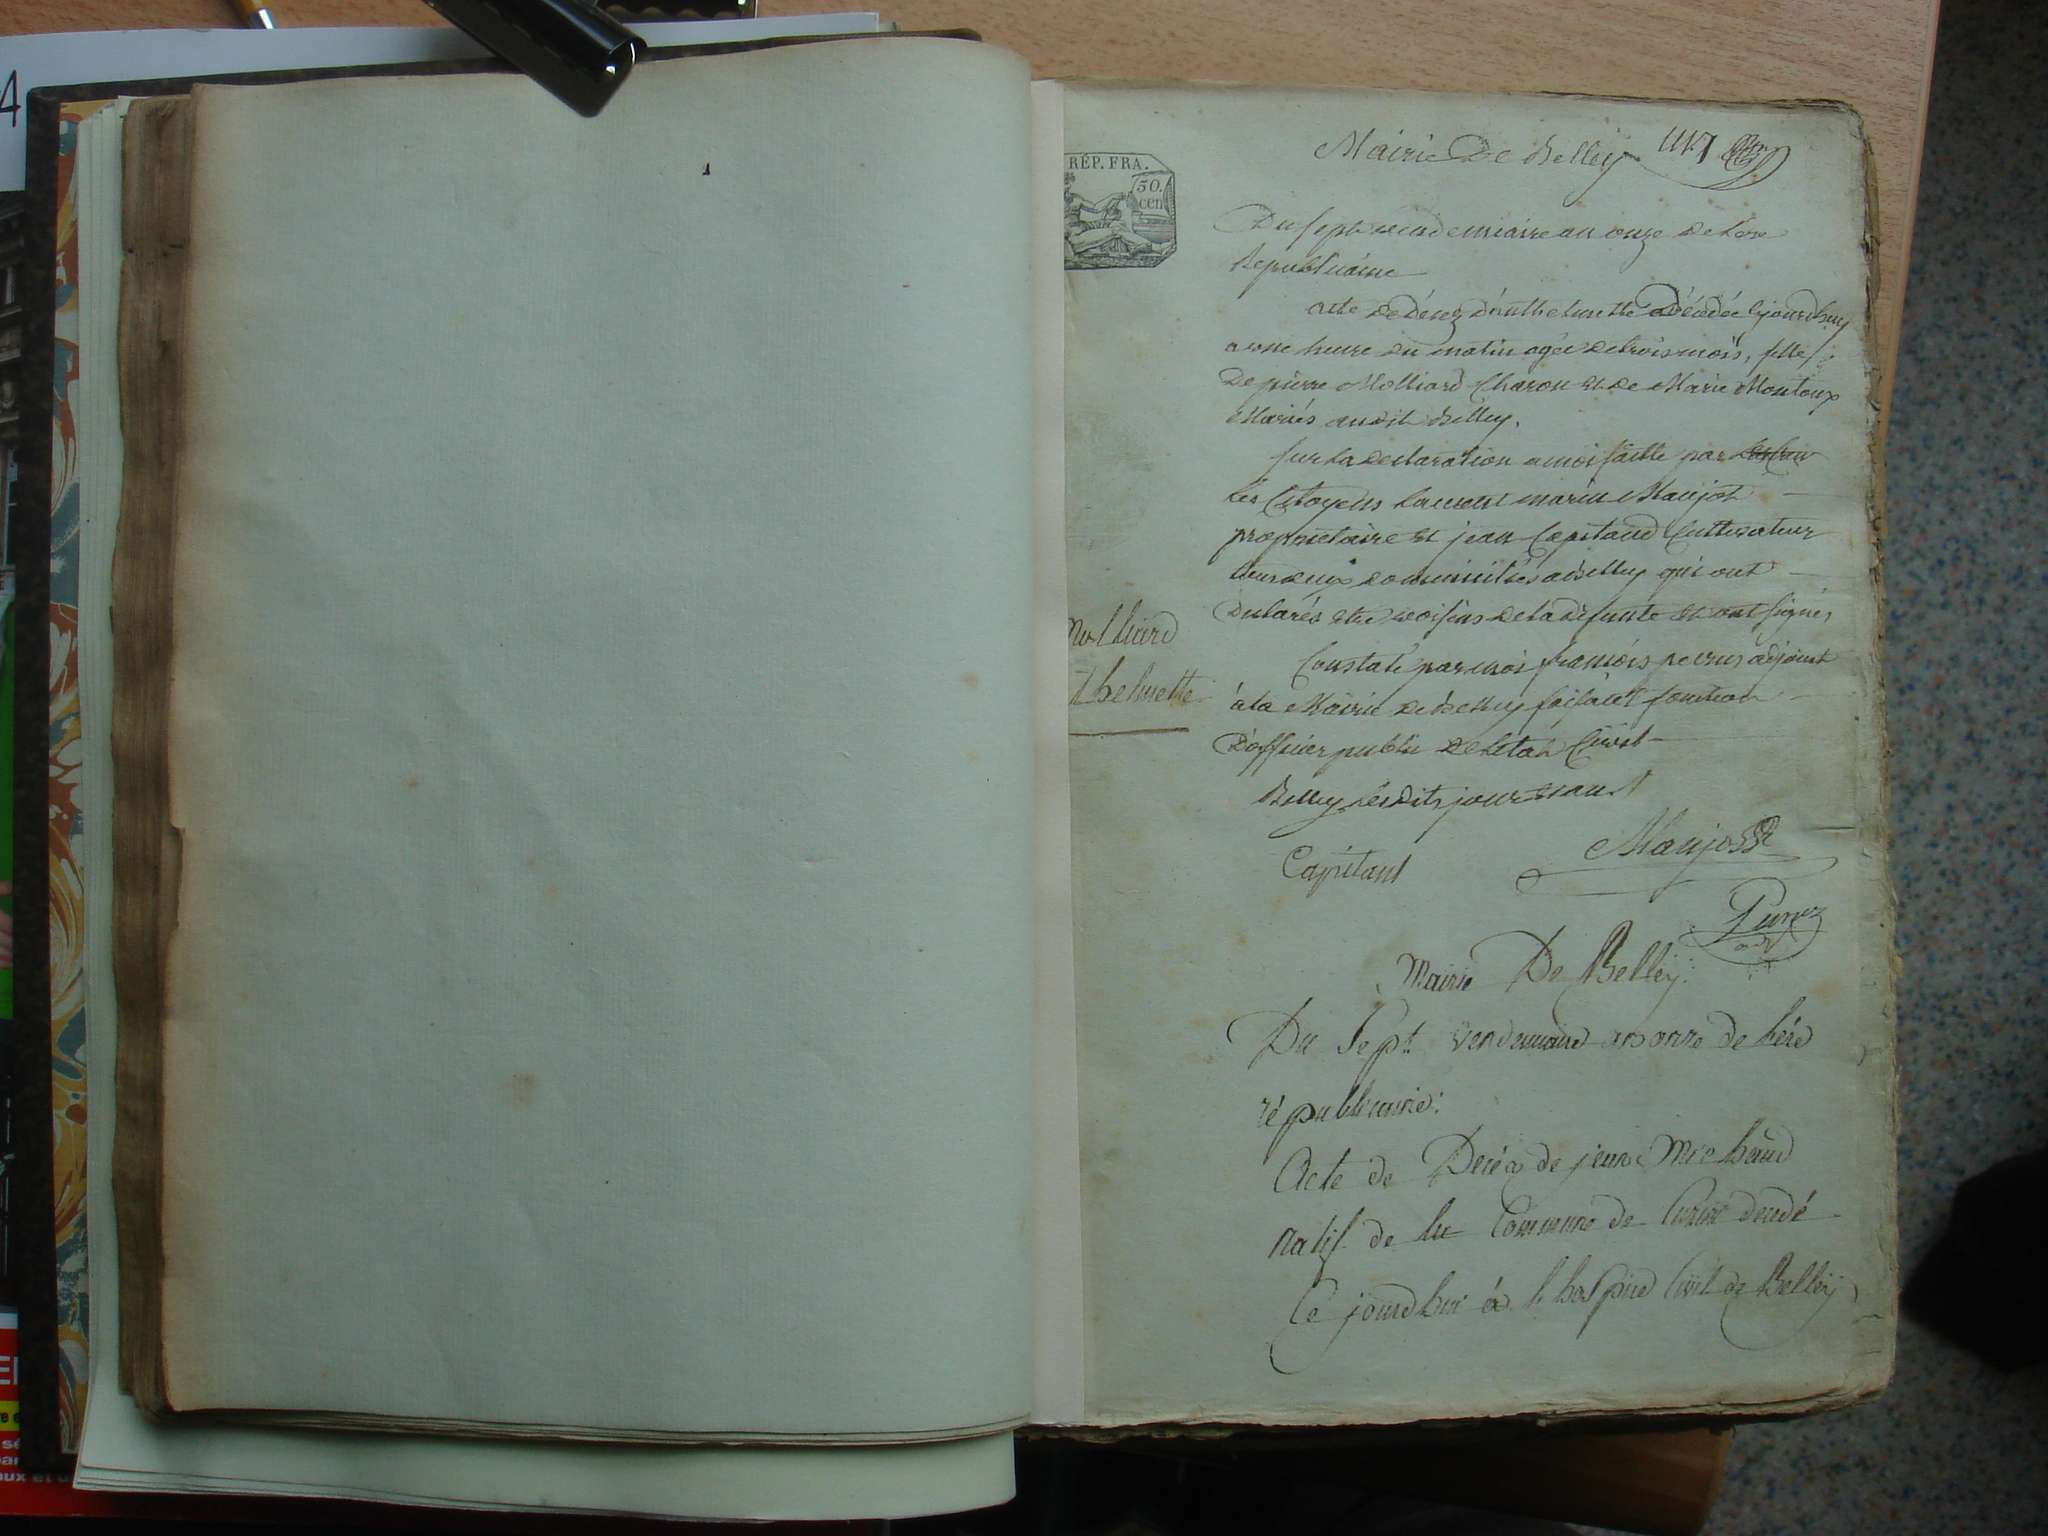 Mairie De Belley
RÉP. FRA.
50.
cen
Du sept vendemiaire an onze de L'ere
Republicaine
acte de décez Decedée cejourdhuy
a une heure du matin agée de trois mois, fille
De pierre Molliard Charon et de Marie Montoux
Mariés audit Belley.
sur La declaration a moi faitte par
Les Citoyens Laurent marin Maujot
proprietaire et jean Capitand Cultivateur
tous deux domiciliés a Belley qui ont
Declarés etre voisins de la defunte et ont signés
Constaté par moi francois peuvrez adjoint
á la Mairie de Belley faisant fonction
D'officier public De L'etat Civil
Belley Lesdits jour et an
Molliard
thelmette
Capitant
Maujot
Mairie De Belley
Du Sept Vendemiaire an onze de l'ére
républicaine
Acte de Decéz de jean Michaud
natif de la Commune de décédé
Ce jourdhui á l'hospice Civil de Belley